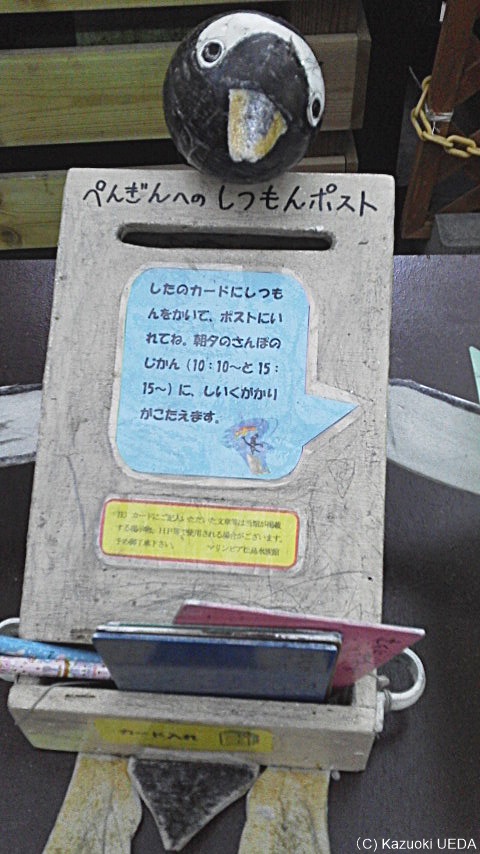 ぺんぎんへの しつもんポスト
したのカードにしつも
んをかいて、ポストにい
れてね。朝夕のさんぽの
じかん（10：10～と15：
15～）に、しいくがかり
がこたえます。
カードにご記入いただいた文章等は当館が掲載
する掲示物、HP等で使用される場合がございます。
予め御了承下さい。 マリンピア松島水族館
カード入れ
(C) Kazuoki UEDA